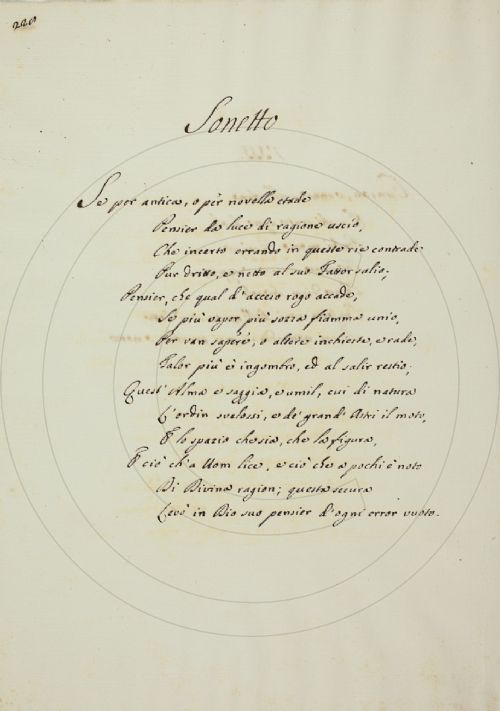 220
Sonetto
Se per antica, o per novella etade
Pensier da luce di ragione uscio,
Che incerto errando in queste rie contrade
Pur dritto, e netto al suo Fattor salio;
Pensier, che qual d'acceso rogo accade,
Se più vapor più sozza fiamma unio,
Per van sapere, o altere inchieste, e rade,
Talor più è ingombro, ed al salir restio;
Quest' Alma e saggia, e umil, cui di natura
L'ordin svelossi, e de' grand' Astri il moto,
E lo spazio che sia, che la figura,
E ciò ch'a Uom lice, e ciò che a pochi è noto
Di Divina ragion; questa secura
Levò in Dio suo pensier d'ogni error vuoto.